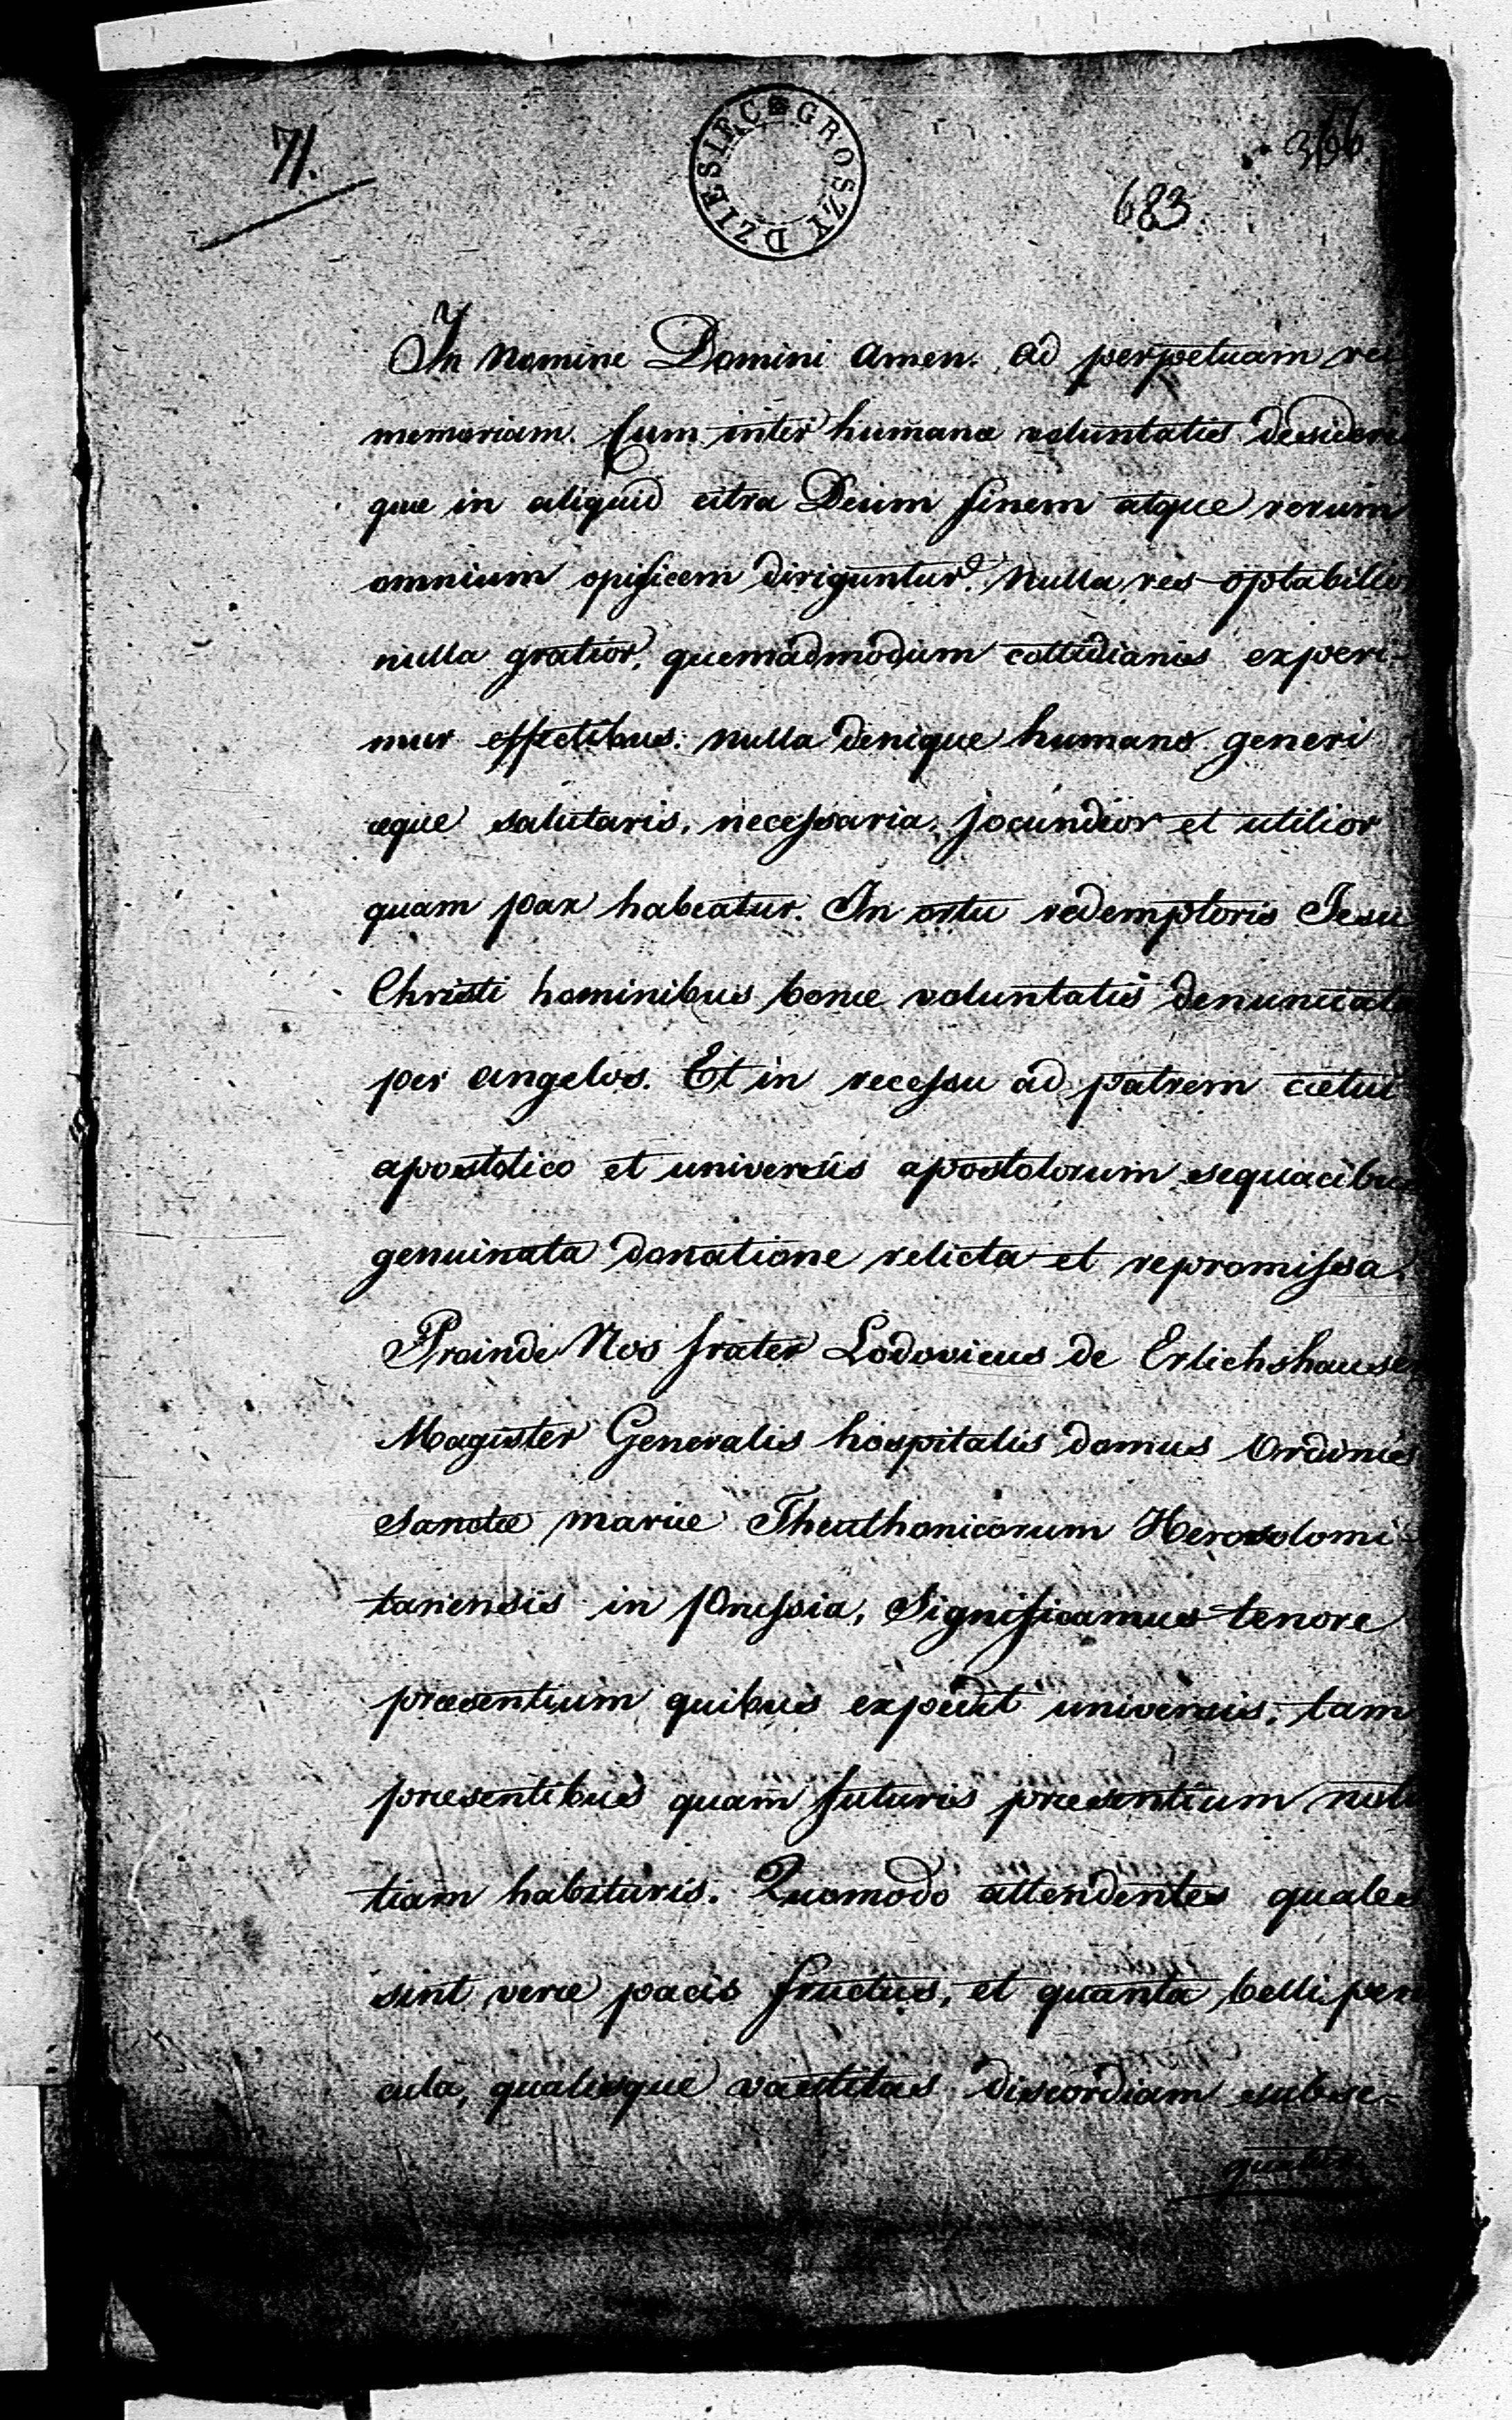 71.
DZIESIĘC GROSZY
366
683
In Nomine Domini Amen. Ad perpetuam rei
memoriam. Cum inter humanæ voluntatis desideri
quæ in aliquid citra Deum finem atque rerum
omnium opificem diriguntur. Nulla res optabilior
nulla gratior, quemadmodum cottidianis experi-
mur effectibus. nulla denique humano generi
æque salutaris, necessaria, jocundior et utilior
quam pax habeatur. In ortu redemptoris Jesu
Christi hominibus bonæ voluntatis denunciat
per angelos. Et in recessu ad patrem cætui
apostolico et universis apostolorum sequacibus
genuinata donatione relicta et repromissa.
Proinde Nos frater Lodovicus de Erlichshausen
Magister Generalis hospitalis domus Ordinis
Sanctæ mariæ Theuthonicorum Herosolomi-
tanensis in Prussia, Significamus tenore
præsentium quibus expedit universis, tam
præsentibus quam futuris præsentium noti
tiam habituris. Quomodo attendentes quales
sint veræ pacis fructus, et quanta belli peri
cula, qualisque vastitas discordiam subse-